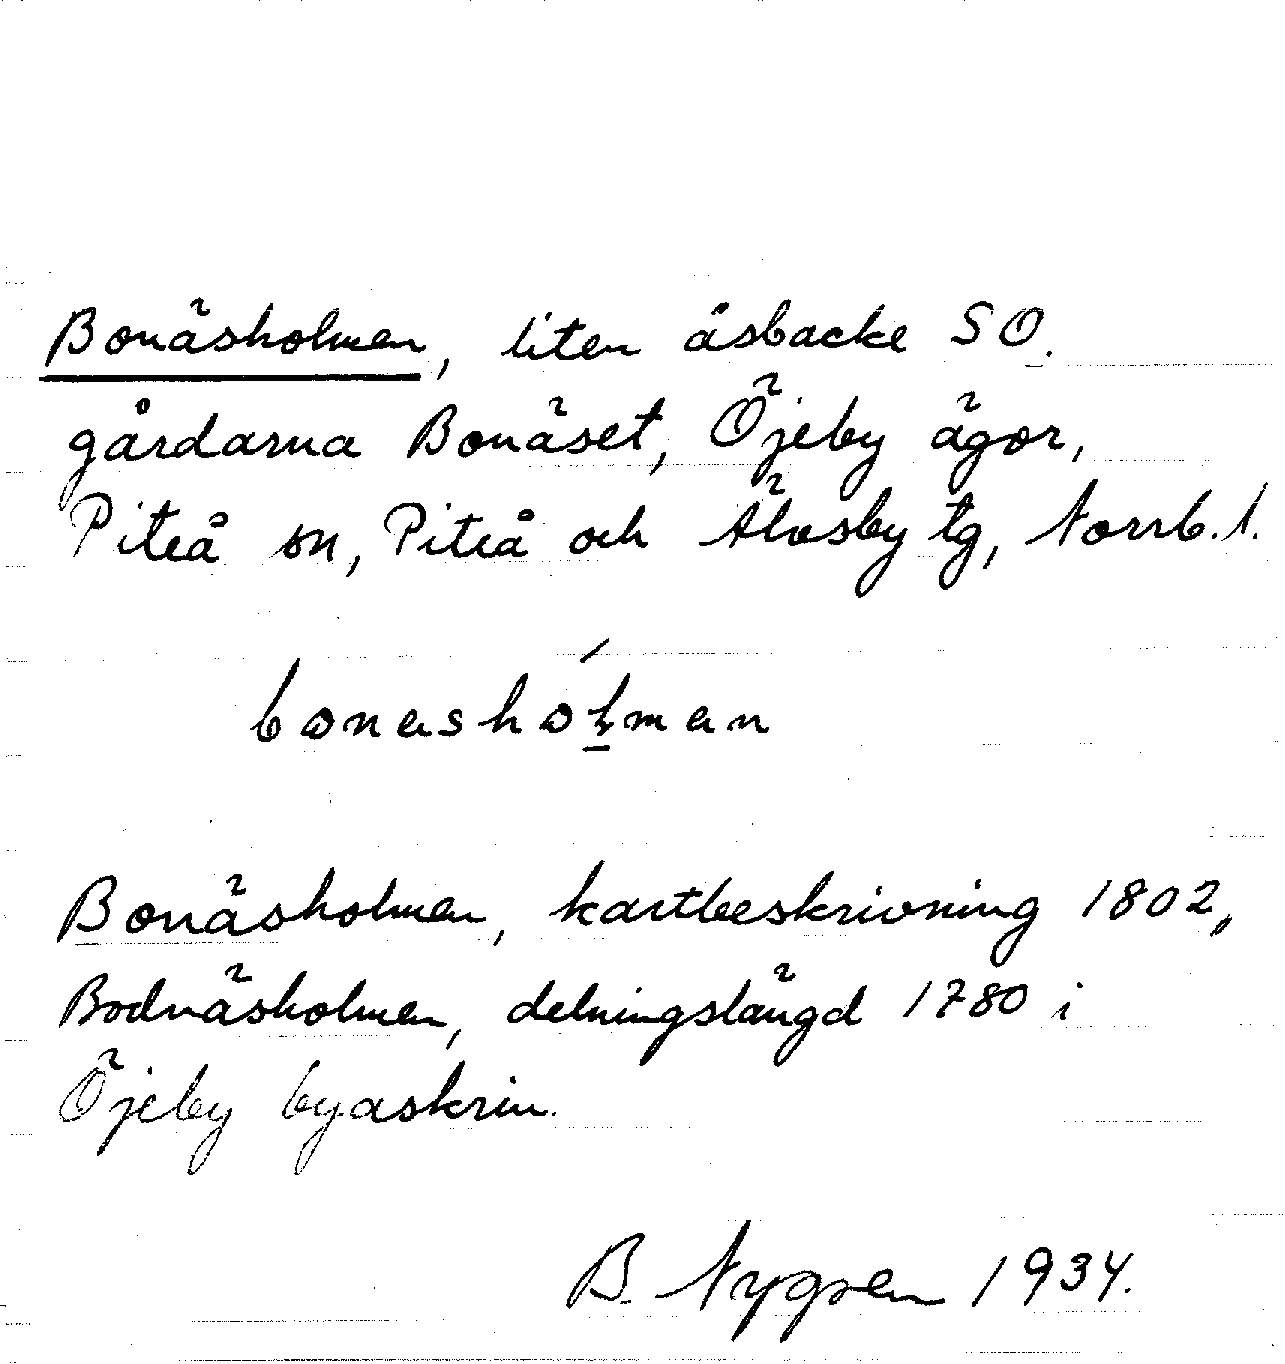 Bonäsholmen, liten åsbacke SO.
gårdarna Bonäset, Öjeby ägor,
Piteå sn, Piteå och Älvsby tg, Norrb. l.
bonashólman
Bonäsholmen, kartbeskrivning 1802,
Bodnäsholmen, delningslängd 1780 i
Öjeby byaskrin.
B. Nygren 1934.